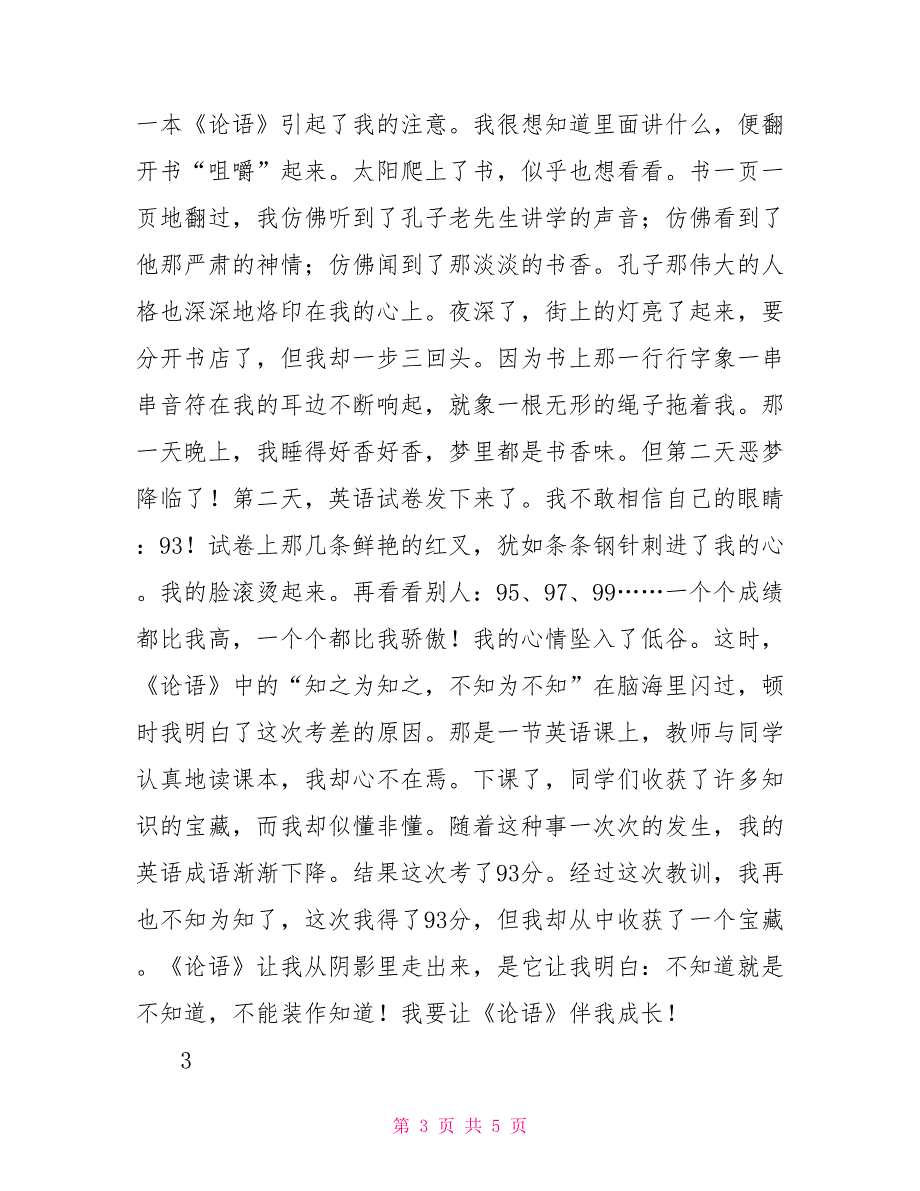 一本《论语》引起了我的注意。我很想知道里面讲什么，便翻
开书“咀嚼”起来。太阳爬上了书，似乎也想看看。书一页一
页地翻过，我仿佛听到了孔子老先生讲学的声音；仿佛看到了
他那严肃的神情；仿佛闻到了那淡淡的书香。孔子那伟大的人
格也深深地烙印在我的心上。夜深了，街上的灯亮了起来，要
分开书店了，但我却一步三回头。因为书上那一行行字象一串
串音符在我的耳边不断响起，就象一根无形的绳子拖着我。那
一天晚上，我睡得好香好香，梦里都是书香味。但第二天恶梦
降临了！第二天，英语试卷发下来了。我不敢相信自己的眼睛
：93！试卷上那几条鲜艳的红叉，犹如条条钢针刺进了我的心
。我的脸滚烫起来。再看看别人：95、97、99……一个个成绩
都比我高，一个个都比我骄傲！我的心情坠入了低谷。这时，
《论语》中的“知之为知之，不知为不知”在脑海里闪过，顿
时我明白了这次考差的原因。那是一节英语课上，教师与同学
认真地读课本，我却心不在焉。下课了，同学们收获了许多知
识的宝藏，而我却似懂非懂。随着这种事一次次的发生，我的
英语成语渐渐下降。结果这次考了93分。经过这次教训，我再
也不知为知了，这次我得了93分，但我却从中收获了一个宝藏
。《论语》让我从阴影里走出来，是它让我明白：不知道就是
不知道，不能装作知道！我要让《论语》伴我成长！
3
第 3 页 共 5 页